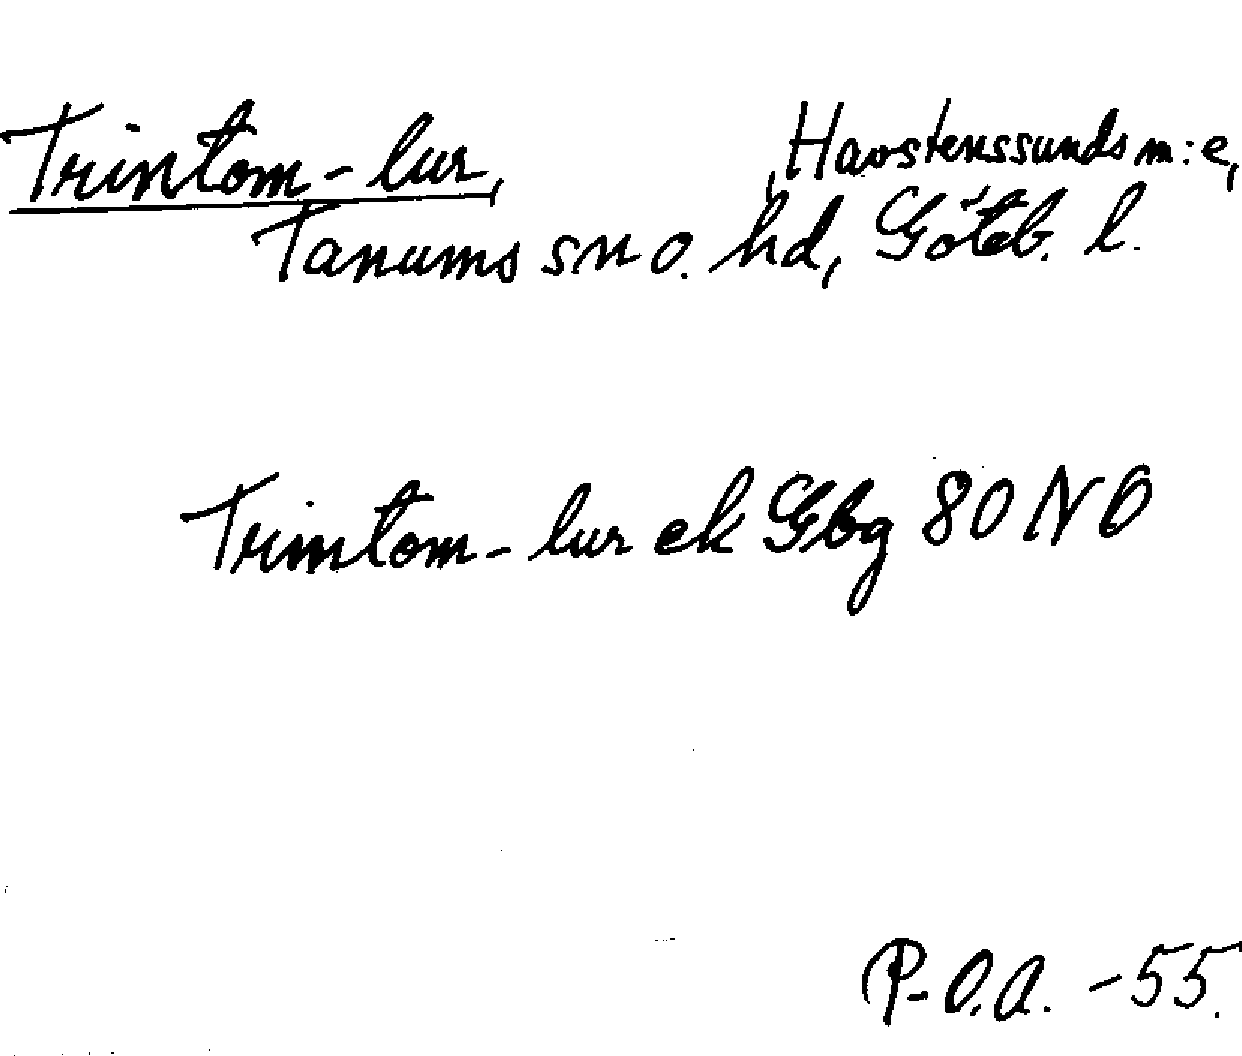 Trintom-lur,
Havstenssunds m:e,
Tanums sn o. hd, Göteb. l.
Trintom-lur ek Gbg 80 NO
P-O.A. -55.